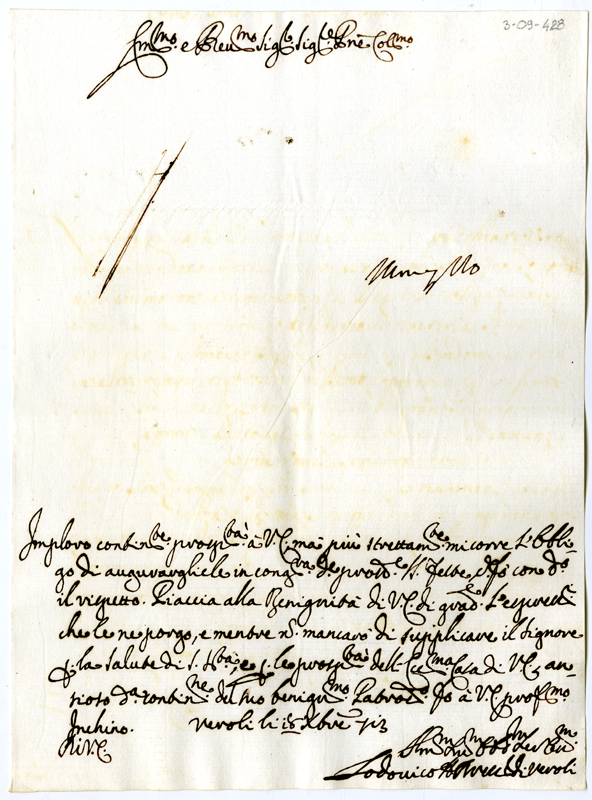 3-09-428
Em.mo e Reu.mo Sig.r Sig.re Pne Coll.mo
Imploro contin.te prosp.tà à V.E., ma più strettam.te mi corre l'obbli-
go di augurargliele in cong.ra d. pross.e S. Feste, e lo fò con d.o
il rispetto. Piaccia alla Benignità di V.E. di grad.e l'espress.i
che le ne porgo, e mentre n. mancarò di supplicare il Signore
p. la salute di S. S.tà, e p. le prosp.tà dell' Ecc.ma Casa di V.E., an-
sioso d.a contin.ne del suo benign.mo Patroc.o fò à V.E. prof.mo
Inchino. Veroli li 15 Xbre 713
Di V.E.
Lodovico Vesc.o di Veroli